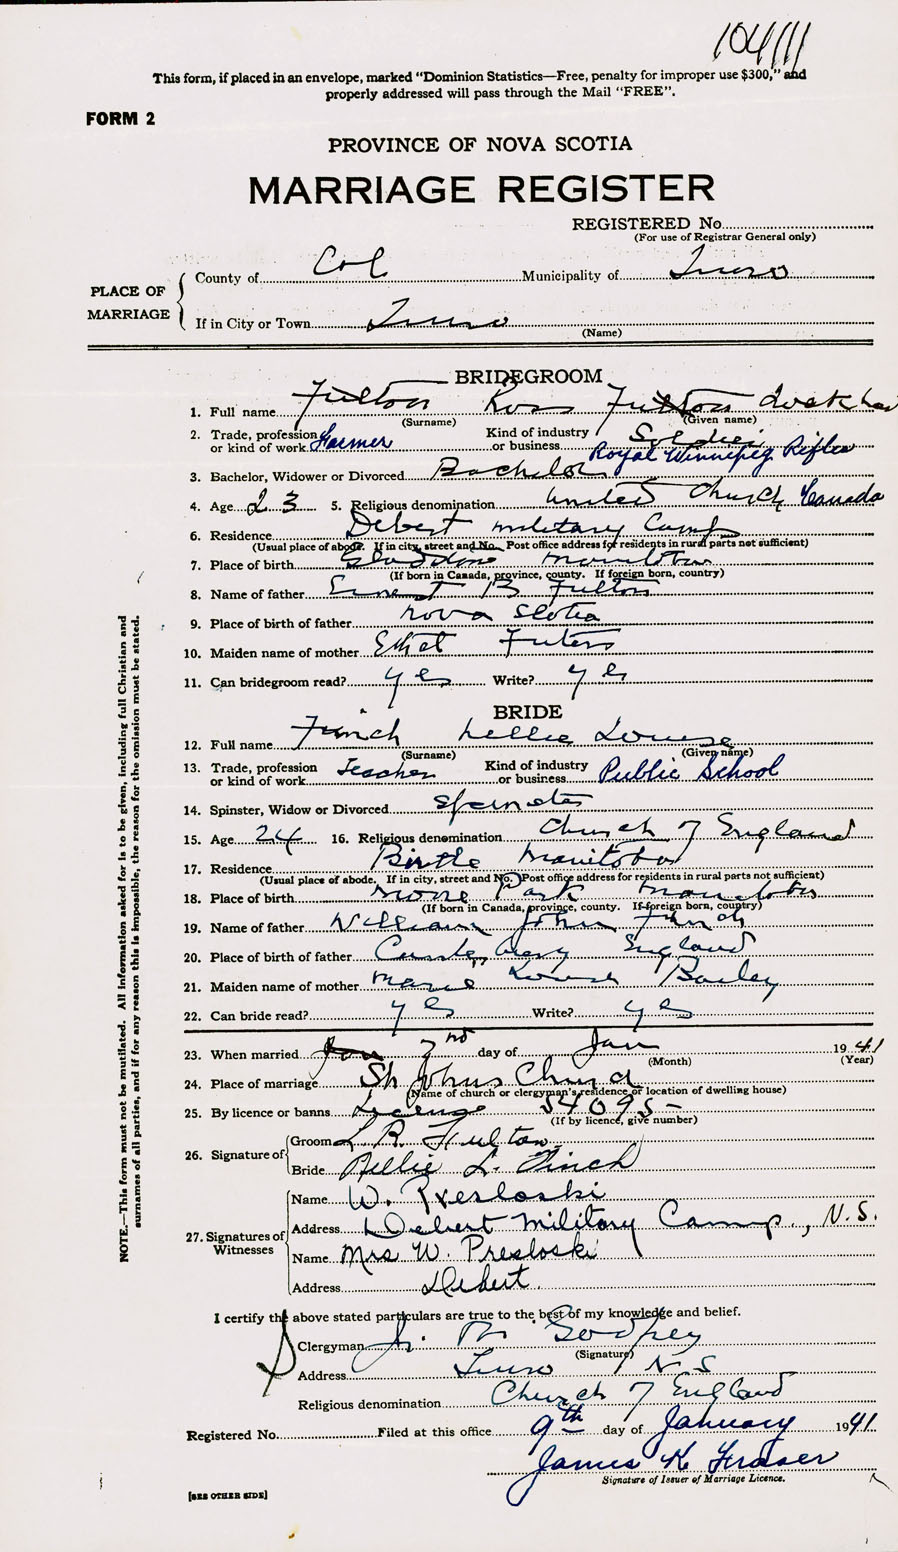 104111
This form, if placed in an envelope, marked "Dominion Statistics—Free, penalty for improper use $300," and
properly addressed will pass through the Mail "FREE".
FORM 2
PROVINCE OF NOVA SCOTIA
MARRIAGE REGISTER
REGISTERED No.
(For use of Registrar General only)
PLACE OF MARRIAGE
County of Col Municipality of Truro
If in City or Town Truro
(Name)
BRIDEGROOM
1. Full name Fulton Ross Fulton
(Surname) (Given name)
2. Trade, profession or kind of work Farmer Kind of industry or business Soldier
Royal Winnipeg Rifles
3. Bachelor, Widower or Divorced Bachelor
4. Age 23 5. Religious denomination United Church Canada
6. Residence Debert Military Camp
(Usual place of abode. If in city, street and No. Post office address for residents in rural parts not sufficient)
7. Place of birth Manitoba
(If born in Canada, province, county. If foreign born, country)
8. Name of father Ernest B Fulton
9. Place of birth of father Nova Scotia
10. Maiden name of mother Ethel
11. Can bridegroom read? yes Write? yes
BRIDE
12. Full name Finch Nellie Louise
(Surname) (Given name)
13. Trade, profession or kind of work Teacher Kind of industry or business Public School
14. Spinster, Widow or Divorced Spinster
15. Age 24 16. Religious denomination Church of England
17. Residence Birtle Manitoba
(Usual place of abode. If in city, street and No. Post office address for residents in rural parts not sufficient)
18. Place of birth Moore Park Manitoba
(If born in Canada, province, county. If foreign born, country)
19. Name of father William John Finch
20. Place of birth of father Canterbury England
21. Maiden name of mother Marie Louise Bailey
22. Can bride read? yes Write? yes
23. When married 7nd day of Jan 1941
(Month) (Year)
24. Place of marriage St Johns Church
(Name of church or clergyman's residence or location of dwelling house)
25. By licence or banns License 54095-
(If by licence, give number)
26. Signature of
Groom L. R. Fulton
Bride Nellie L. Finch
27. Signatures of Witnesses
Name W. Presloski
Address Debert Military Camp., N.S.
Name Mrs W. Presloski
Address Debert.
I certify the above stated particulars are true to the best of my knowledge and belief.
Clergyman Godfrey
(Signature)
Address Truro N S
Religious denomination Church of England
Registered No. Filed at this office 9th day of January 1941
James K Fraser
Signature of Issuer of Marriage Licence.
[SEE OTHER SIDE]
NOTE.—This form must not be mutilated. All information asked for is to be given, including full Christian and
surnames of all parties, and if for any reason this is impossible, the reason for the omission must be stated.